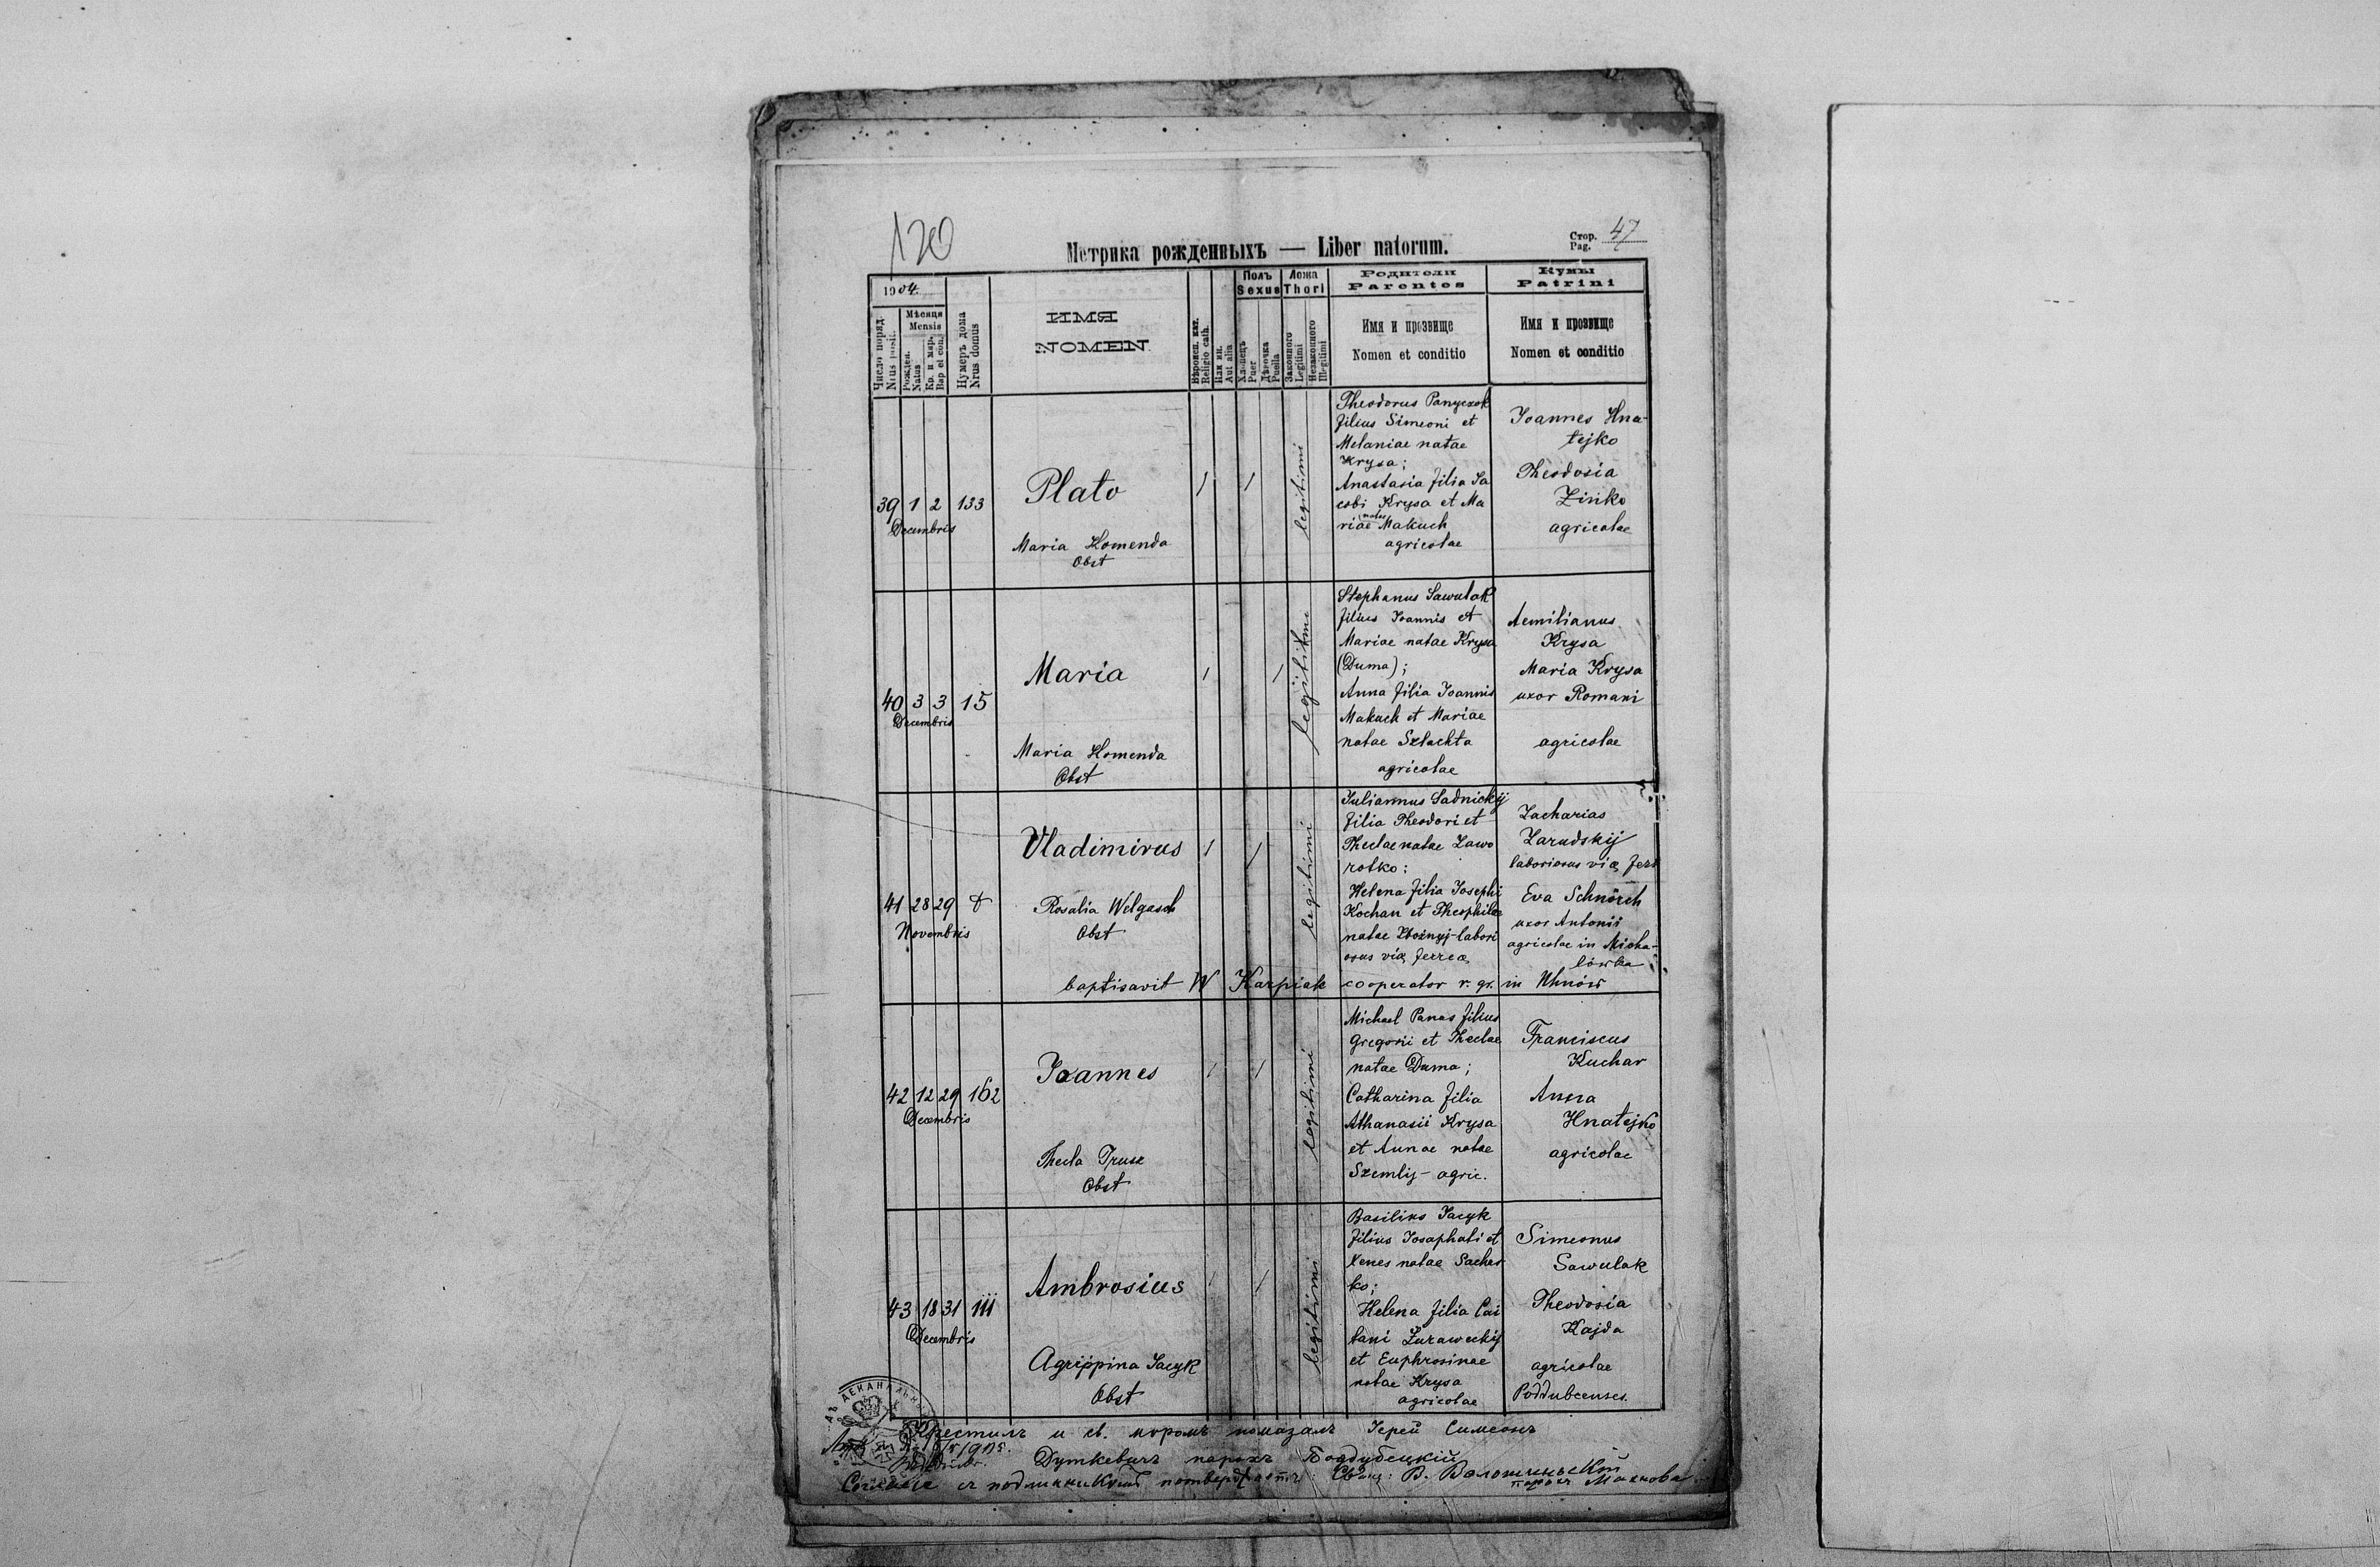 120
Метрика рожденныхъ — Liber natorum.
Стор. 47
Pag.
1904.
Число поряд.
Nrus posit.
Мѣсяця
Mensis
Рожден.
Natus
Кр. и мѵр.
Bap et con.
Нумеръ дома
Nrus domus
ИМЯ
NOMEN
Вѣроисп. кат.
Religio cath.
Или ин.
Aut alia
Полъ
Sexus
Хлопецъ
Puer
Дѣвочка
Puella
Ложа
Thori
Законного
Legitimi
Незаконного
Illegitimi
Родители
Parentes
Имя и прозвище
Nomen et conditio
Кумы
Patrini
Имя и прозвище
Nomen et conditio
39 1 2 133
Decembris
Plato
Maria Homenda
Obst
1 1
legitimi
Theodorus Panyczok
filius Simeoni et
Melaniae natae
Krysa;
Anastasia filia Ja
cobi Krysa et Ma
riae natae Makuch
agricolae
Joannes Hna-
tejko
Theodosia
Zinko
agricolae
40 3 3 15
Decembris
Maria
Maria Homenda
Obst
1 1
legitimi
Stephanus Sawulak
filius Joannis et
Mariae natae Krysa
(Duma);
Anna filia Joannis
Makuch et Mariae
natae Szlachta
agricolae
Aemilianus
Krysa
Maria Krysa
uxor Romani
agricolae
41 28 29
Novembris
Vladimirus
Rosalia Welgasch
Obst
1 1
legitimi
Juliannus Sadnickij
filia Theodori et
Theclae natae Zawo
rotko:
Helena filia Josephi
Kochan et Theophilae
natae Zboznyj-labori
osus viae ferreae
Zacharias
Zarudskij
laboriosus viae ferr
Eva Schnörch
uxor Antonii
agricolae in Micha-
lówka
baptisavit W Karpiak cooperator r. gr. in Uhnów
42 12 29 162
Decembris
Joannes
Thecla Trusz
Obst
1 1
legitimi
Michael Panas filius
Gregorii et Theclae
natae Duma;
Catharina filia
Athanasii Krysa
et Annae natae
Szemlij - agric.
Franciscus
Kuchar
Anna
Hnatejko
agricolae
43 18 31 111
Decembris
Ambrosius
Agrippina Jacyk
Obst
1 1
legitimi
Basilius Jacyk
filius Josaphati et
Xenes natae Sachar
ko;
Helena filia Cai
tani Zuraweckij
et Euphrosinae
natae Krysa
agricolae
Simeonus
Sawulak
Theodosia
Kajda
agricolae
Poddubcenses.
Крестилъ и св. мѵромъ помазалъ Іерей Симеонъ
Дуткевичъ парохъ Поддубецкій
съ подлинникомъ потверд В. Волошиньскій
парохъ Махнова